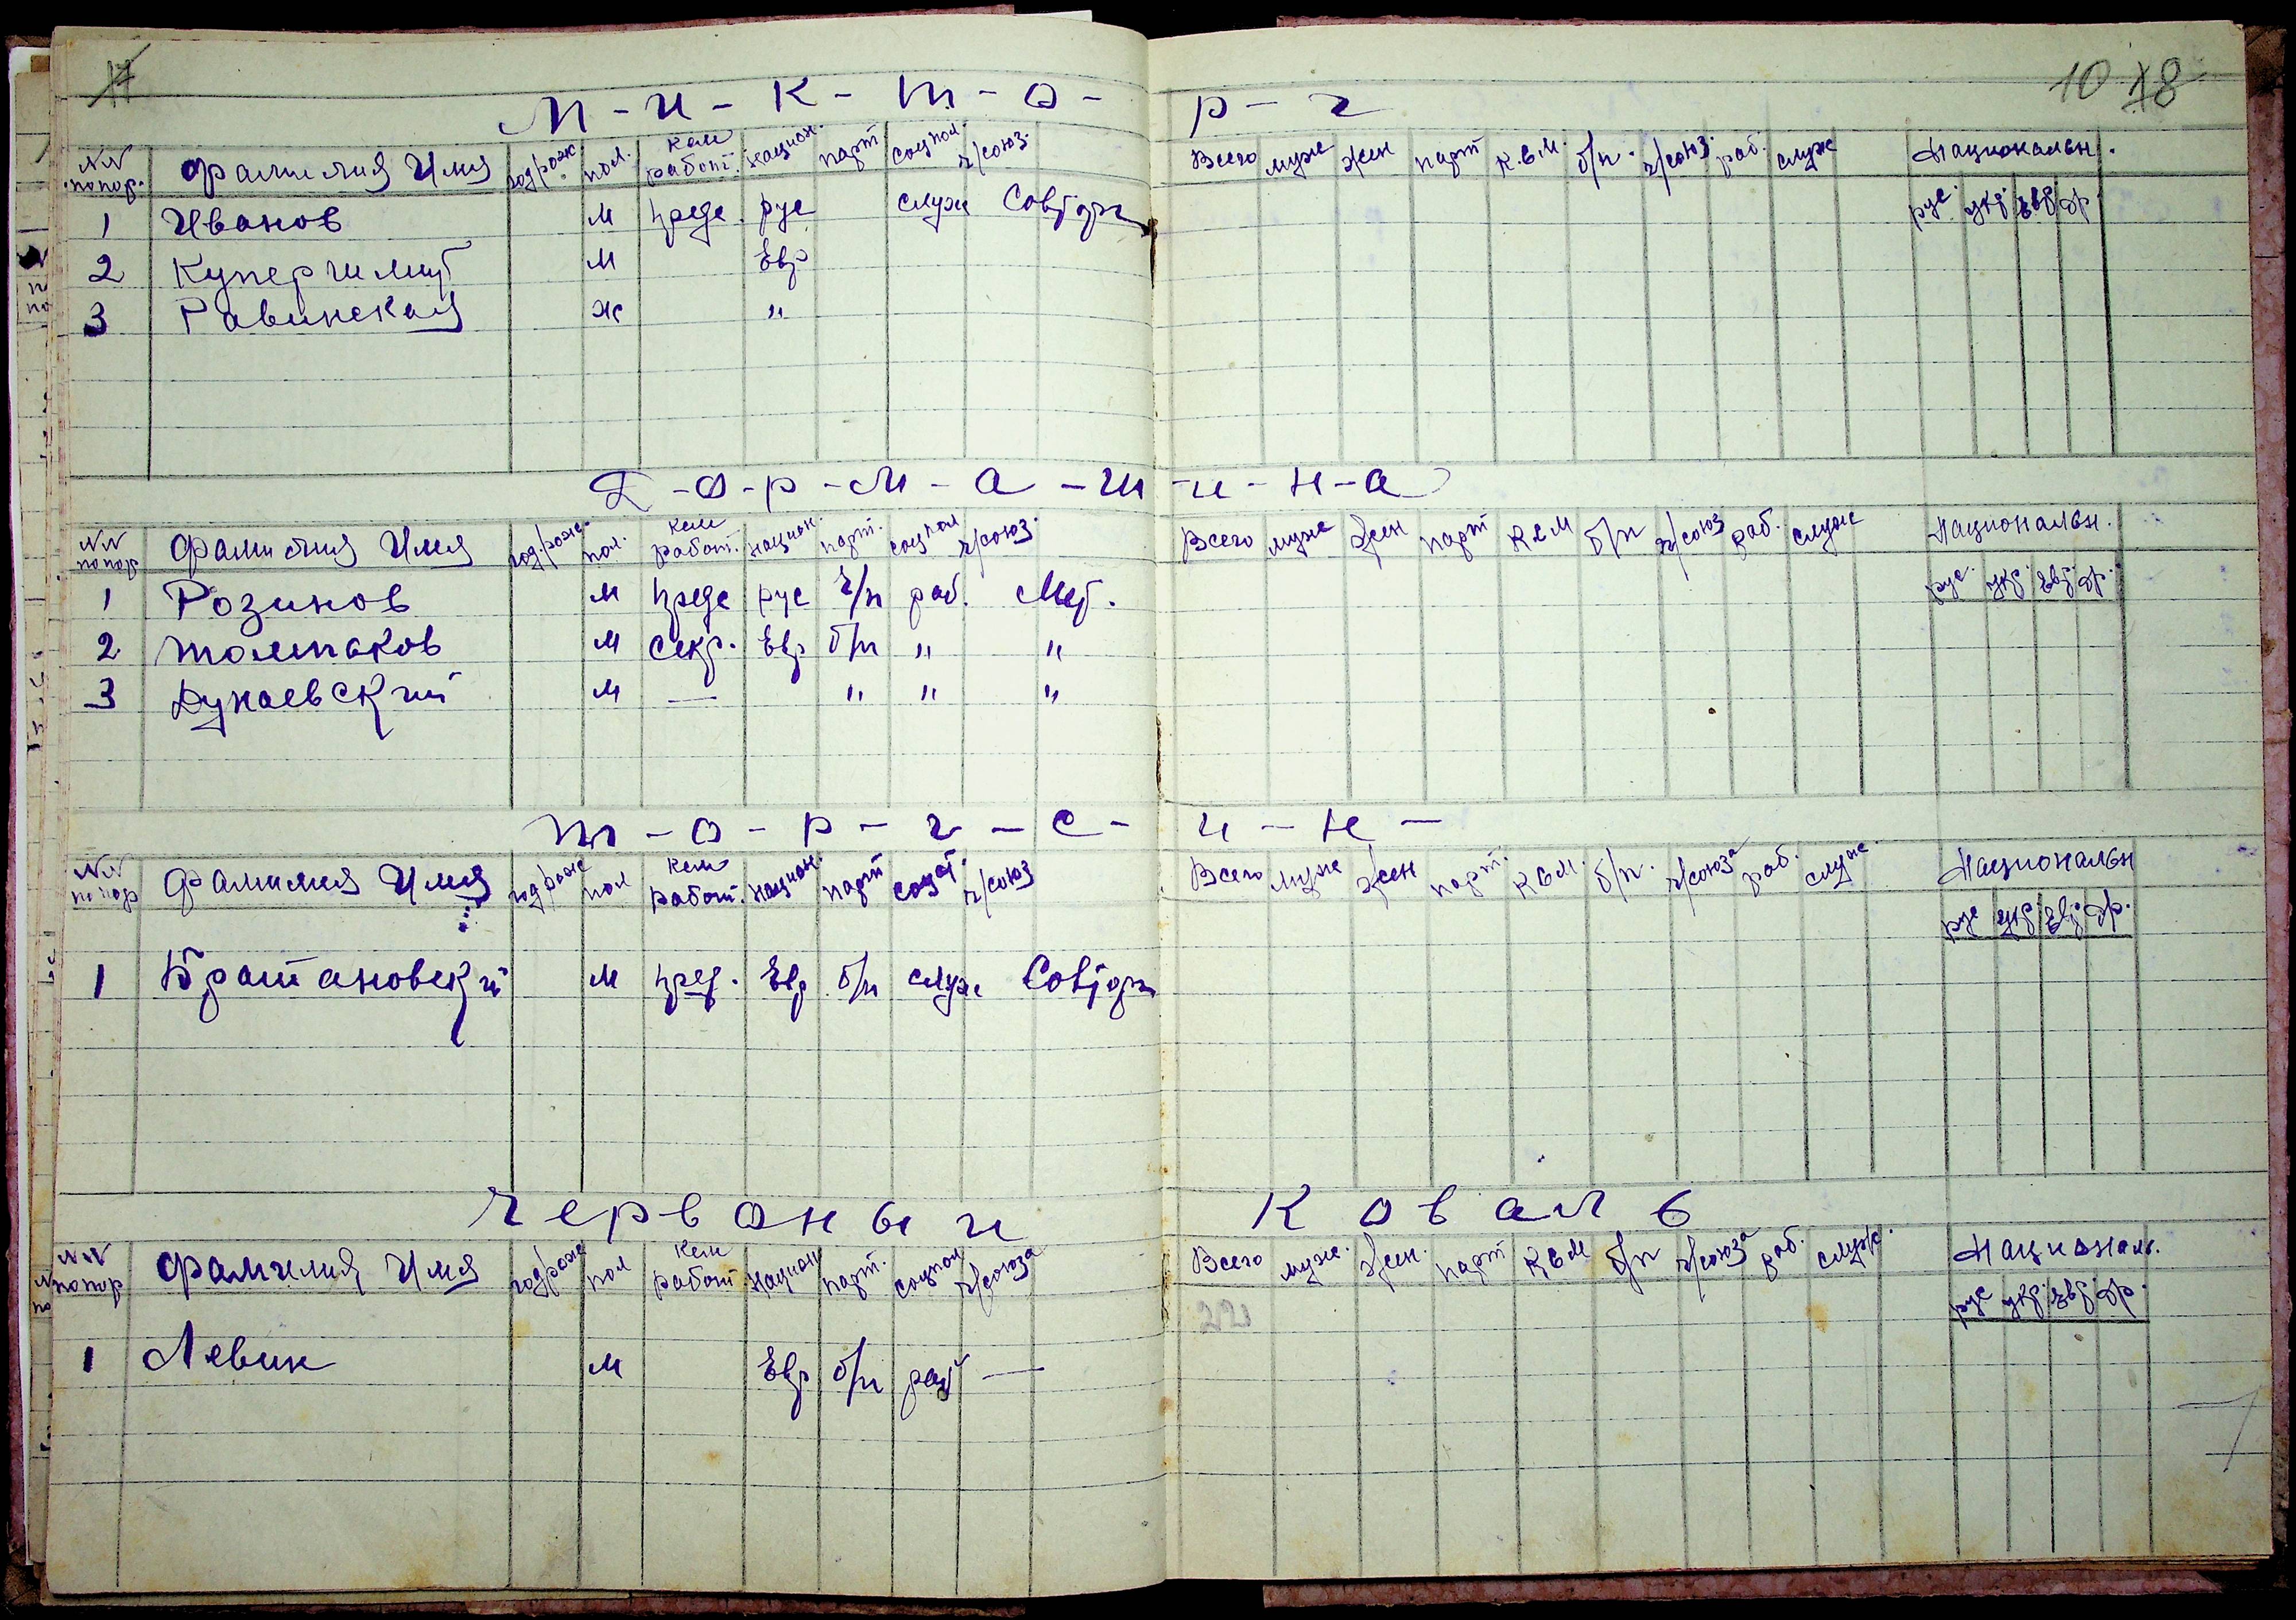 17 10 18
М-и-к-т-о-р-г
NN по пор. Фамилия Имя год/рож пол. кем работ. национ. парт. соцпол. ч/союз. Всего муж жен парт К.С.М. б/п. ч/союз. раб. служ Национальн.
рус. укр. Евр др.
1 Иванов м пред. рус служ Совторг
2 Купершмит м Евр
3 Равинская ж "
Д-о-р-м-а-ш-и-н-а
NN по пор Фамилия Имя год.рож. пол. кем работ. национ. парт. соцпол ч/союз. Всего муж жен парт КСМ б/п ч/союз раб. служ Национальн.
рус. укр. Евр. др.
1 Розинов м пред рус ч/п раб. Мет.
2 Толмаков м секр. Евр б/п " "
3 Дунаевский м — " " "
Т-о-р-г-с-и-н-
NN по пор Фамилия Имя год/рож пол кем работ. национ. парт соцст. ч/союз Всего муж жен парт. КСМ. б/п. ч/союза раб. служ. Национальн
рус укр. Евр. др.
1 Братановский м пред. Евр б/п служ Совторг
Червоный Коваль
NN по пор Фамилия Имя год/рож пол кем работ национ парт. соцпол ч/союза Всего муж. жен. парт КСМ б/п ч/союза раб. служ. Националь.
рус укр. Евр. др.
22
1 Левин м Евр б/п раб —